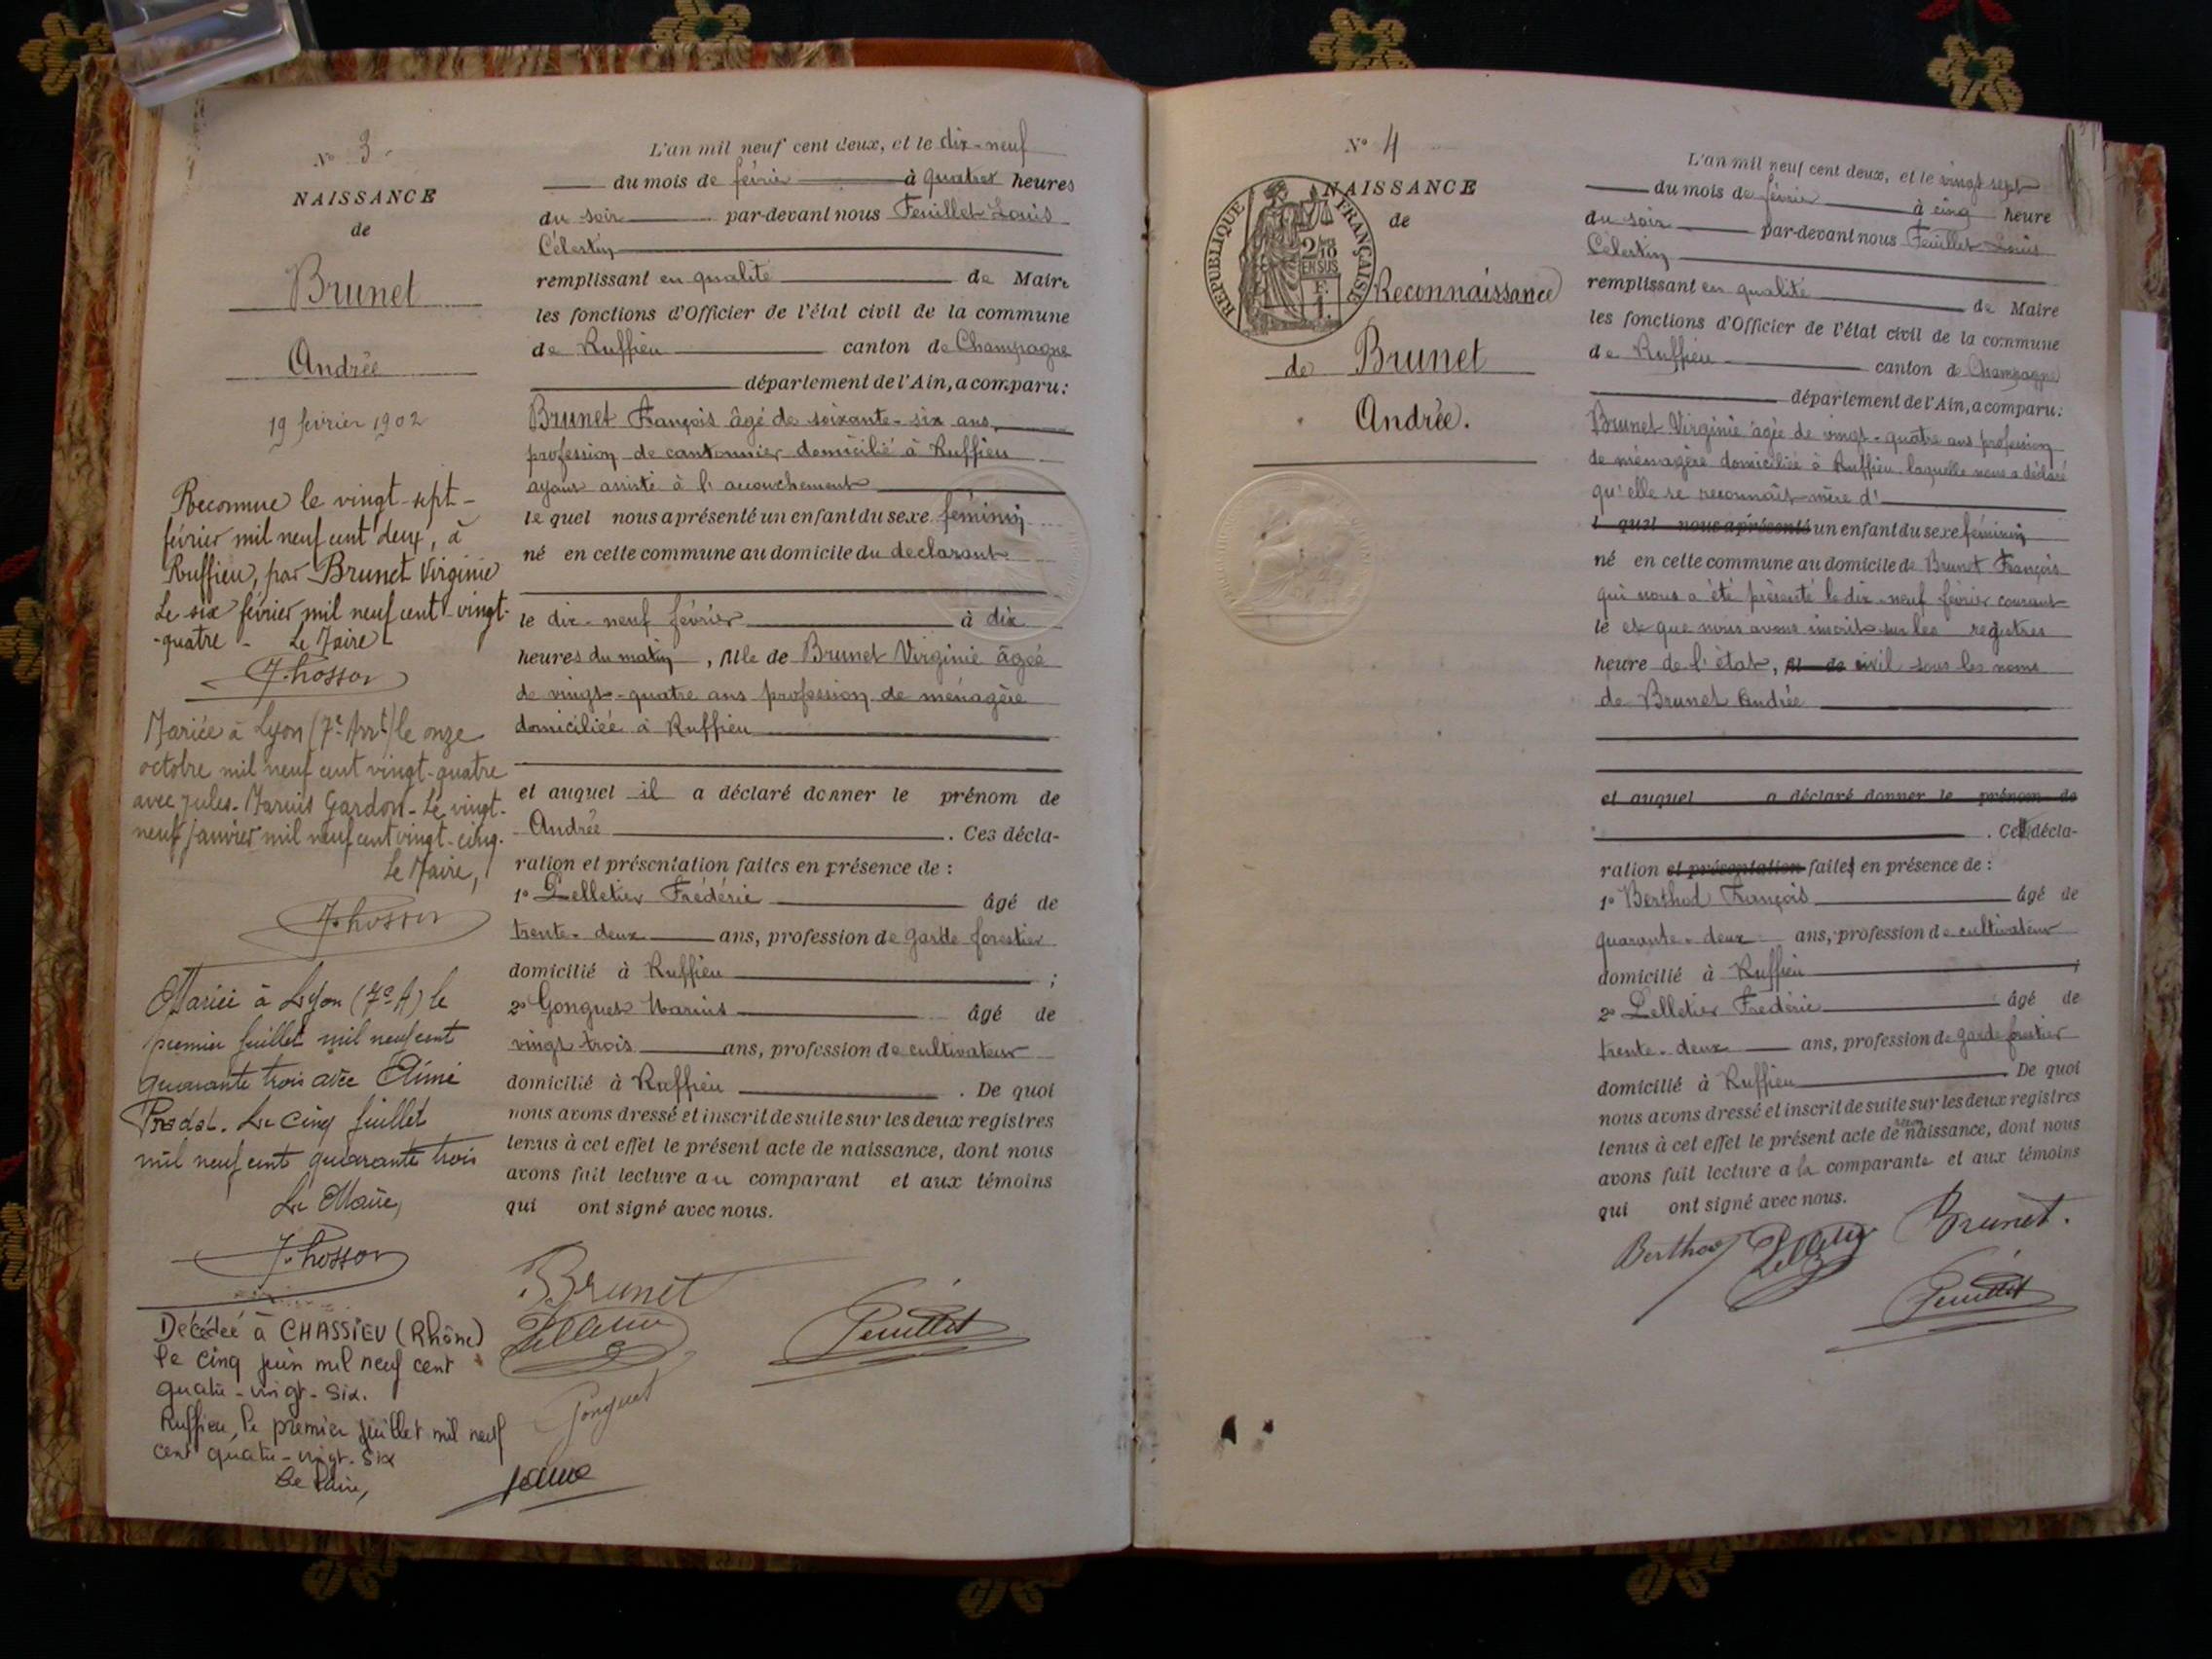 N° 3
NAISSANCE
de
Brunet
Andrée
19 février 1902
Reconnue le vingt-sept-
février mil neuf cent deux, à
Ruffieu, par Brunet Virginie
Le six février mil neuf cent vingt-
-quatre - Le Maire
Mariée à Lyon (7e Arrt) le onze
octobre mil neuf cent vingt-quatre
avec Jules-Marius Gardon - Le vingt-
neuf janvier mil neuf cent vingt-cinq.
Le Maire,
Mariée à Lyon (7e A) le
premier juillet mil neuf cent
quarante trois avec Aimé
Le cinq juillet
mil neuf cent quarante trois
Le Maire,
Décédée à CHASSIEU (Rhône)
le cinq juin mil neuf cent
quatre-vingt-six.
Ruffieu, le premier juillet mil neuf
cent quatre-vingt-six
Le Maire,
L'an mil neuf cent deux, et le dix-neuf
du mois de février à quatre heures
du soir par-devant nous Feuillet Louis
Célestin
remplissant en qualité de Maire
les fonctions d'Officier de l'état civil de la commune
de Ruffieu canton de Champagne
département de l'Ain, a comparu:
Brunet François âgé de soixante-six ans,
profession de cantonnier domicilié à Ruffieu
ayant assisté à l'accouchement
le quel nous a présenté un enfant du sexe féminin
né en cette commune au domicile du déclarant
le dix-neuf février à dix
heures du matin, fille de Brunet Virginie âgée
de vingt-quatre ans profession de ménagère
domiciliée à Ruffieu
et auquel il a déclaré donner le prénom de
Andrée. Ces décla-
ration et présentation faites en présence de :
1° Pelletier Frédéric âgé de
trente-deux ans, profession de garde forestier
domicilié à Ruffieu ;
2° Gonguet Marius âgé de
vingt-trois ans, profession de cultivateur
domicilié à Ruffieu. De quoi
nous avons dressé et inscrit de suite sur les deux registres
tenus à cet effet le présent acte de naissance, dont nous
avons fait lecture au comparant et aux témoins
qui ont signé avec nous.
Brunet
Feuillet
Gonguet
N° 4
NAISSANCE
de
REPUBLIQUE FRANÇAISE
2/10
EN SUS
F.
1.
Reconnaissance
de Brunet
Andrée.
L'an mil neuf cent deux, et le vingt sept
du mois de février à cinq heure
du soir par-devant nous Feuillet Louis
Célestin
remplissant en qualité de Maire
les fonctions d'Officier de l'état civil de la commune
de Ruffieu canton de Champagne
département de l'Ain, a comparu:
Brunet Virginie âgée de vingt-quatre ans profession
de ménagère domiciliée à Ruffieu laquelle nous a déclaré
qu'elle se reconnaît mère d'
l quel nous a présenté un enfant du sexe féminin
né en cette commune au domicile de Brunet François
qui nous a été présenté le dix-neuf février courant
le et que nous avons inscrit sur les registres
heure de l'état, fil de civil sous les noms
de Brunet Andrée
et auquel a déclaré donner le prénom de
. Cett décla-
ration et présentation faites en présence de :
1° Berthod François âgé de
quarante-deux ans, profession de cultivateur
domicilié à Ruffieu ;
2° Pelletier Frédéric âgé de
trente-deux ans, profession de garde forestier
domicilié à Ruffieu De quoi
nous avons dressé et inscrit de suite sur les deux registres
tenus à cet effet le présent acte de naissance, dont nous
avons fait lecture a la comparante et aux témoins
qui ont signé avec nous.
Berthod Brunet.
Feuillet